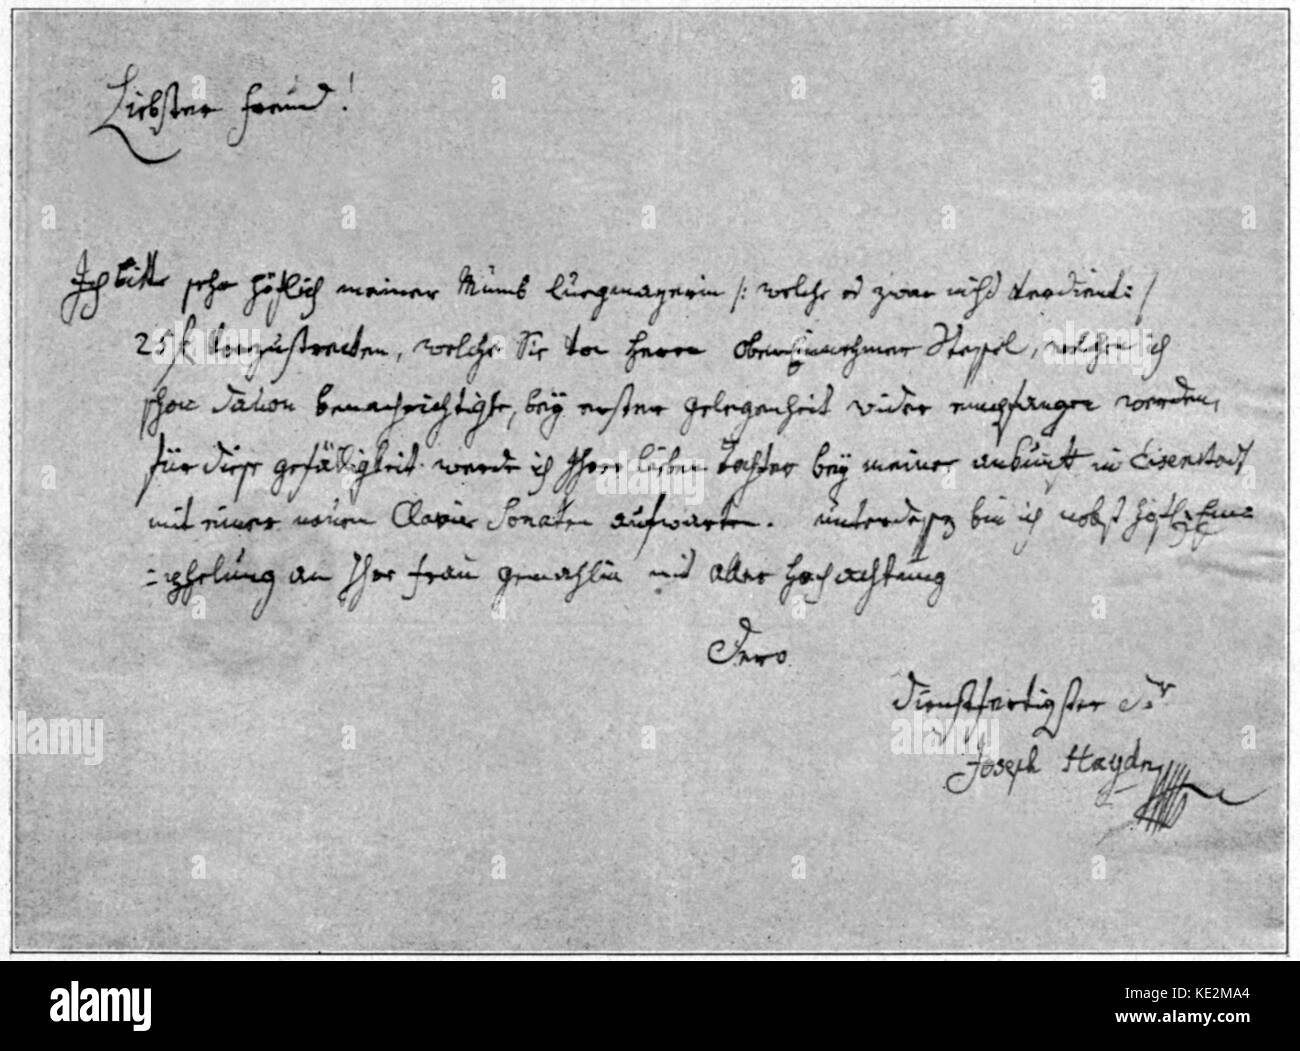 Liebster Freund!
Ich bitte sehr höflich meiner Mumb Luegmayerin /: welche es zwar nicht verdient :/
25 f vorzustrecken, welche Sie von Herrn obereinnehmer Stessel, welchen ich
schon davon benachrichtigte, bey erster gelegenheit wider empfangen werden,
für diese gefälligkeit werde ich Ihrer lieben Tochter bey meiner ankunft in Eisenstadt
mit einer neuen Clavier Sonaten aufwarten. unterdessen bin ich nebst höfl. Em=
=pfehlung an Ihre Frau gemahlin mit aller hochachtung
Dero
dienstfertigster Dr
Joseph Haydn
alamy
a
alamy
Image ID: KE2MA4
www.alamy.com